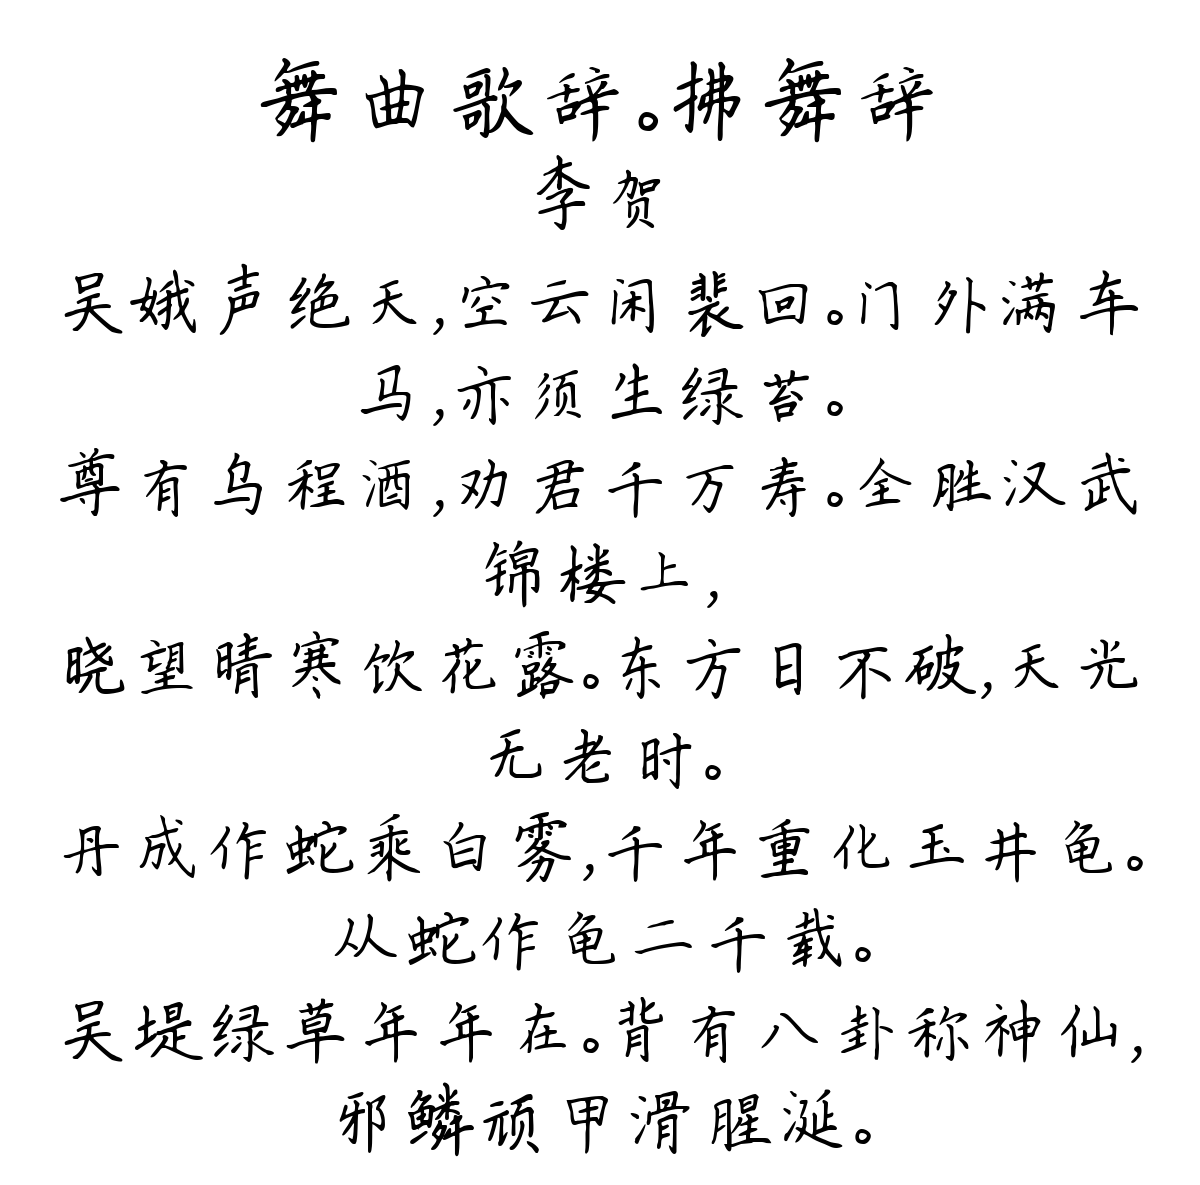 舞曲歌辞。拂舞辞
李贺
吴娥声绝天,空云闲裴回。门外满车
马,亦须生绿苔。
尊有乌程酒,劝君千万寿。全胜汉武
锦楼上,
晓望晴寒饮花露。东方日不破,天光
无老时。
丹成作蛇乘白雾,千年重化玉井龟。
从蛇作龟二千载。
吴堤绿草年年在。背有八卦称神仙,
邪鳞顽甲滑腥涎。